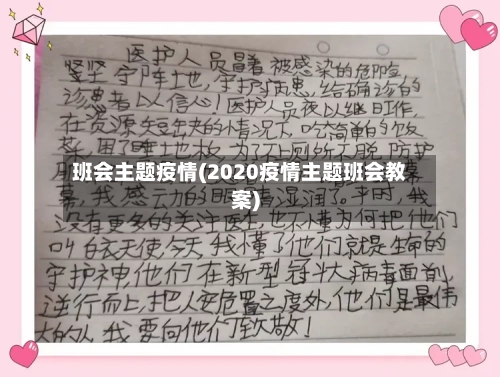 医护人员冒着被感染的危险,
坚守阵土也,守护病患,给确诊的
诊患者以信心!医护人员夜以继日工作,
在资源短缺的情况下,吃简单的饭
困了睡土地板,为了
班会主题疫情(2020疫情主题班会教
案)
我感动的眼
湿润了。平时,我
没有更多的关注医生,也不懂为何把他们
叫白衣天使,今天,我懂了他们就是生命的
守护神,他们在新型冠状病毒面前,
逆行而上,把人安危置之度外,他们是最伟
大的人,我要向他们致敬!